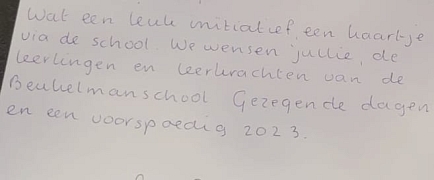 Wat een leuk initiatief, een kaartje
via de school. We wensen jullie, de
leerlingen en leerkrachten van de
Beukelmanschool Gezegende dagen
en een voorspoedig 2023.